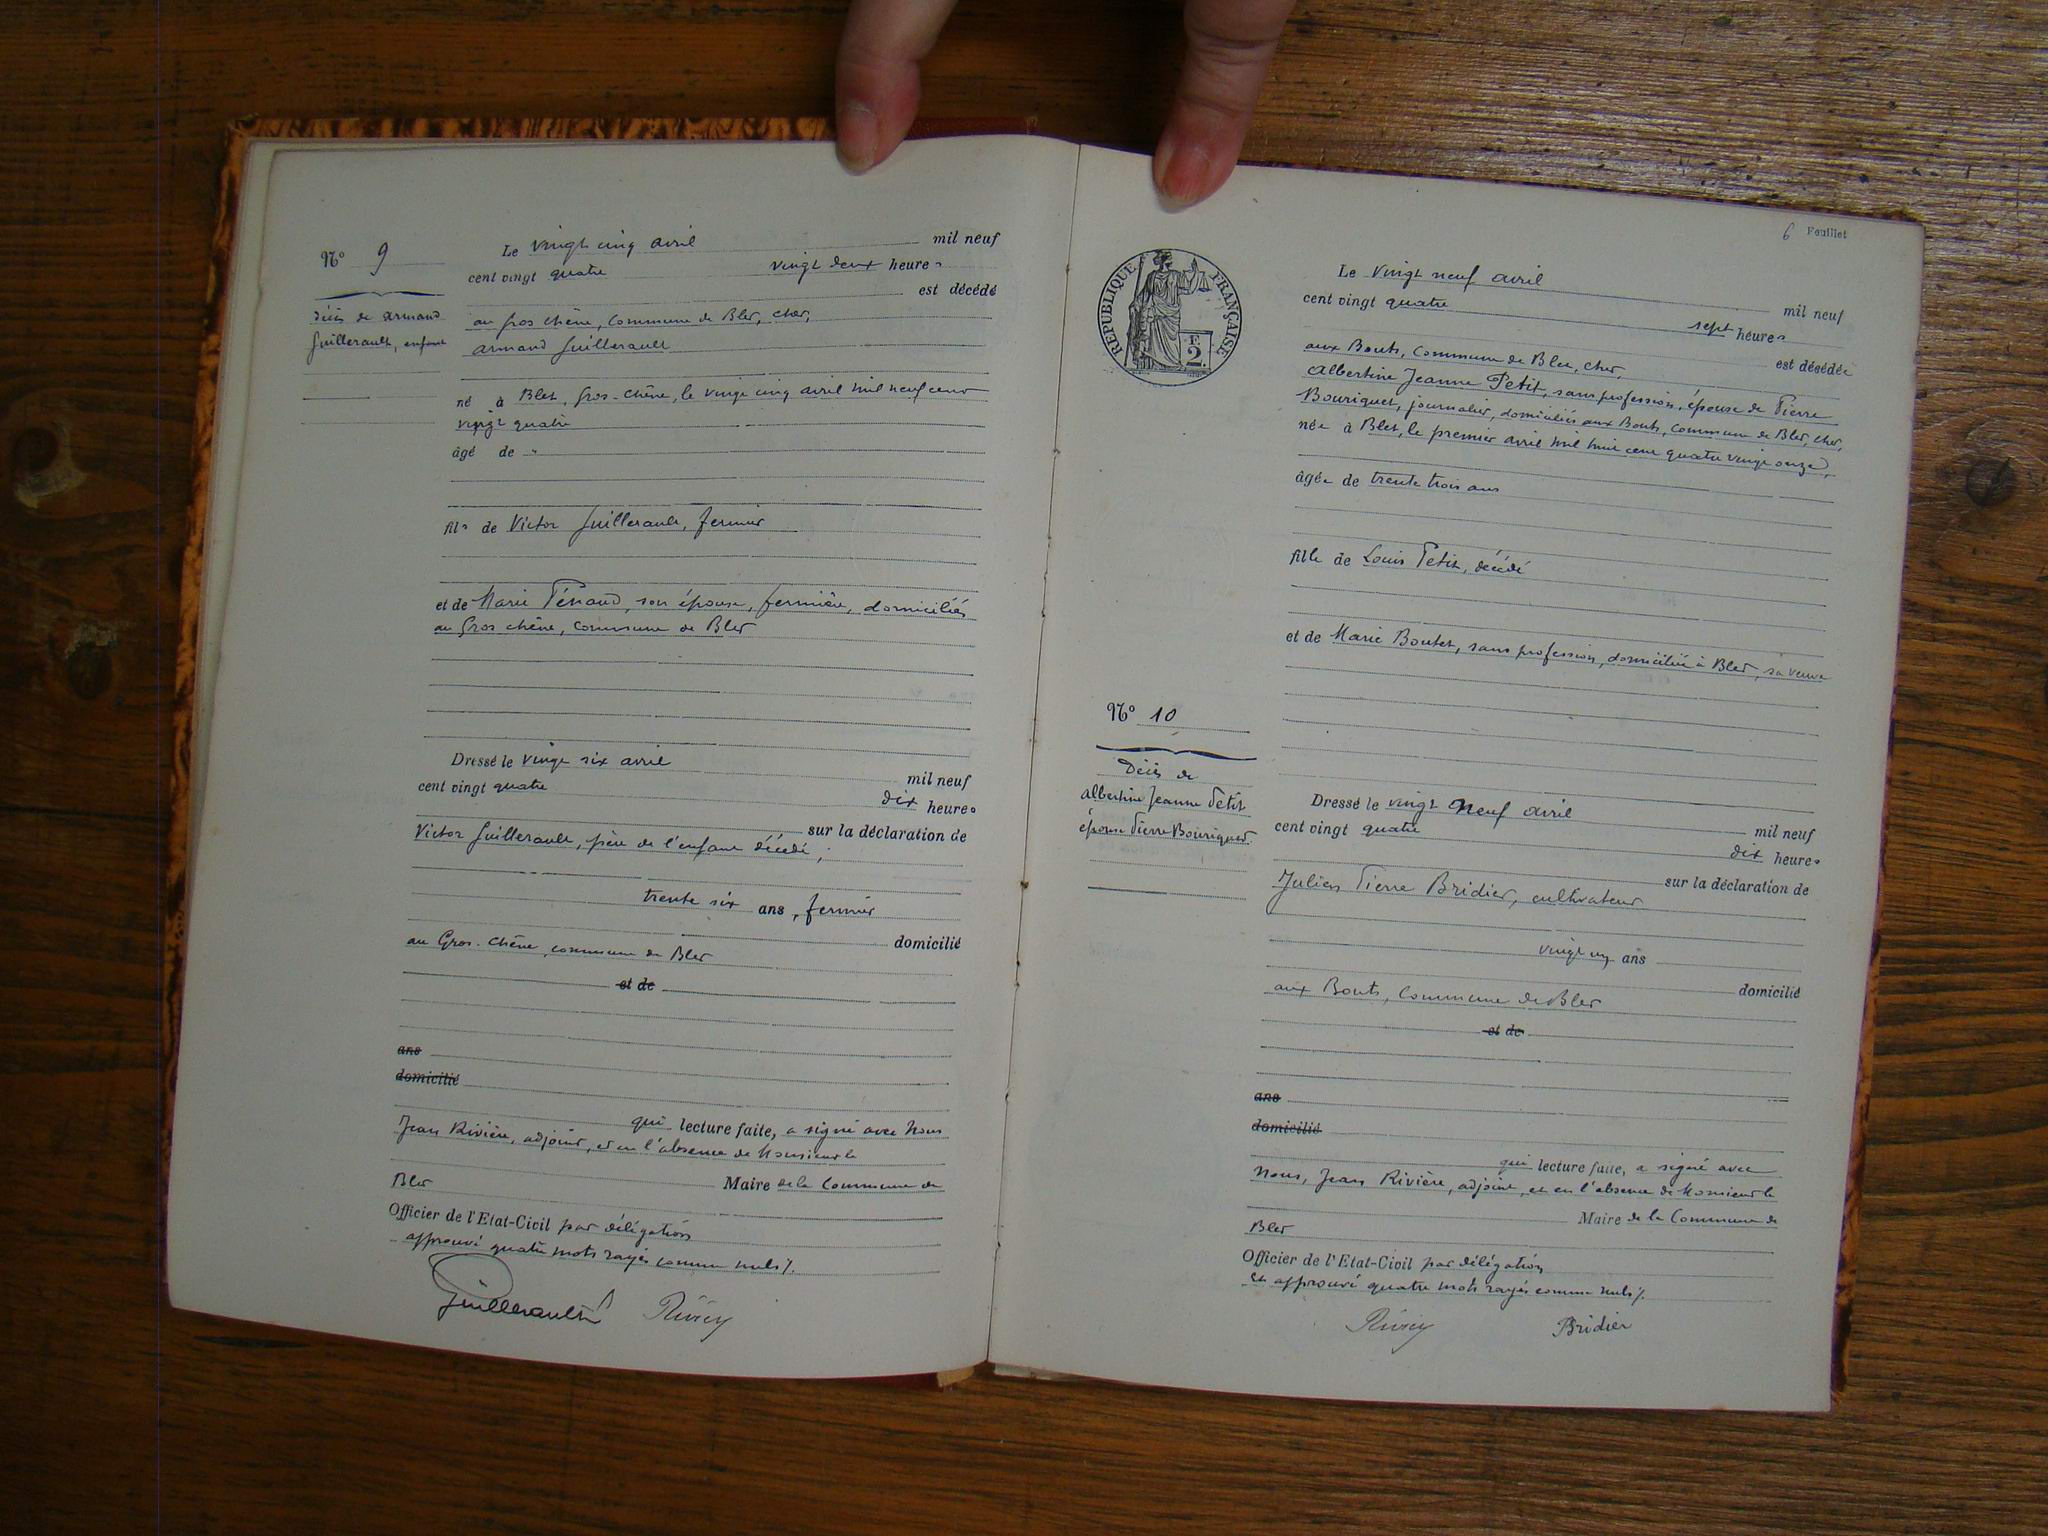 Nº 9
décès de Armand
Guillerault, enfant
Le vingt cinq avril mil neuf
cent vingt quatre vingt deux heures
est décédé
au Gros chêne, commune de Blet, cher,
Armand Guillerault
né à Blet, Gros-chêne, le vingt cinq avril mil neuf cent
vingt quatre
âgé de "
fils de Victor Guillerault, fermier
et de Marie Pénaud, son épouse, fermière, domiciliés
au Gros chêne, commune de Blet
Dressé le vingt six avril mil neuf
cent vingt quatre dix heures
sur la déclaration de
Victor Guillerault, père de l'enfant décédé,
trente six ans, fermier
domicilié
au Gros-chêne, commune de Blet
et de
ans
domicilié
qui lecture faite, a signé avec Nous
Jean Rivière, adjoint, et en l'absence de Monsieur le
Maire de la Commune de
Blet
Officier de l'Etat-Civil par délégation
approuvé quatre mots rayés comme nuls %.
Guillerault
6 Feuillet
RÉPUBLIQUE FRANÇAISE
F.
2
Nº 10
Décès de
Albertine Jeanne Petit
épouse Pierre Bouriquet
Le vingt neuf avril mil neuf
cent vingt quatre sept heures
est décédée
aux Bouts, commune de Blet, cher,
Albertine Jeanne Petit, sans profession, épouse de Pierre
Bouriquet, journalier, domiciliés aux Bouts, commune de Blet, cher,
née à Blet, le premier avril mil huit cent quatre vingt onze,
âgée de trente trois ans
fille de Louis Petit, décédé
et de Marie Boutet, sans profession, domiciliée à Blet, sa veuve
Dressé le vingt neuf avril mil neuf
cent vingt quatre dix heures
sur la déclaration de
Julien Pierre Bridier, cultivateur
vingt un ans
domicilié
aux Bouts, commune de Blet
et de
ans
domicilié
qui lecture faite, a signé avec
Nous, Jean Rivière, adjoint, et en l'absence de Monsieur le
Maire de la Commune de
Blet
Officier de l'Etat-Civil par délégation
et approuvé quatre mots rayés comme nuls %.
Bridier